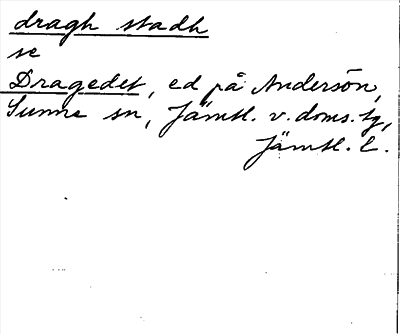 dragh stadh
se
Dragedet, ed på Andersön,
Sunne sn, Jämtl. v. doms. tg,
Jämtl. l.